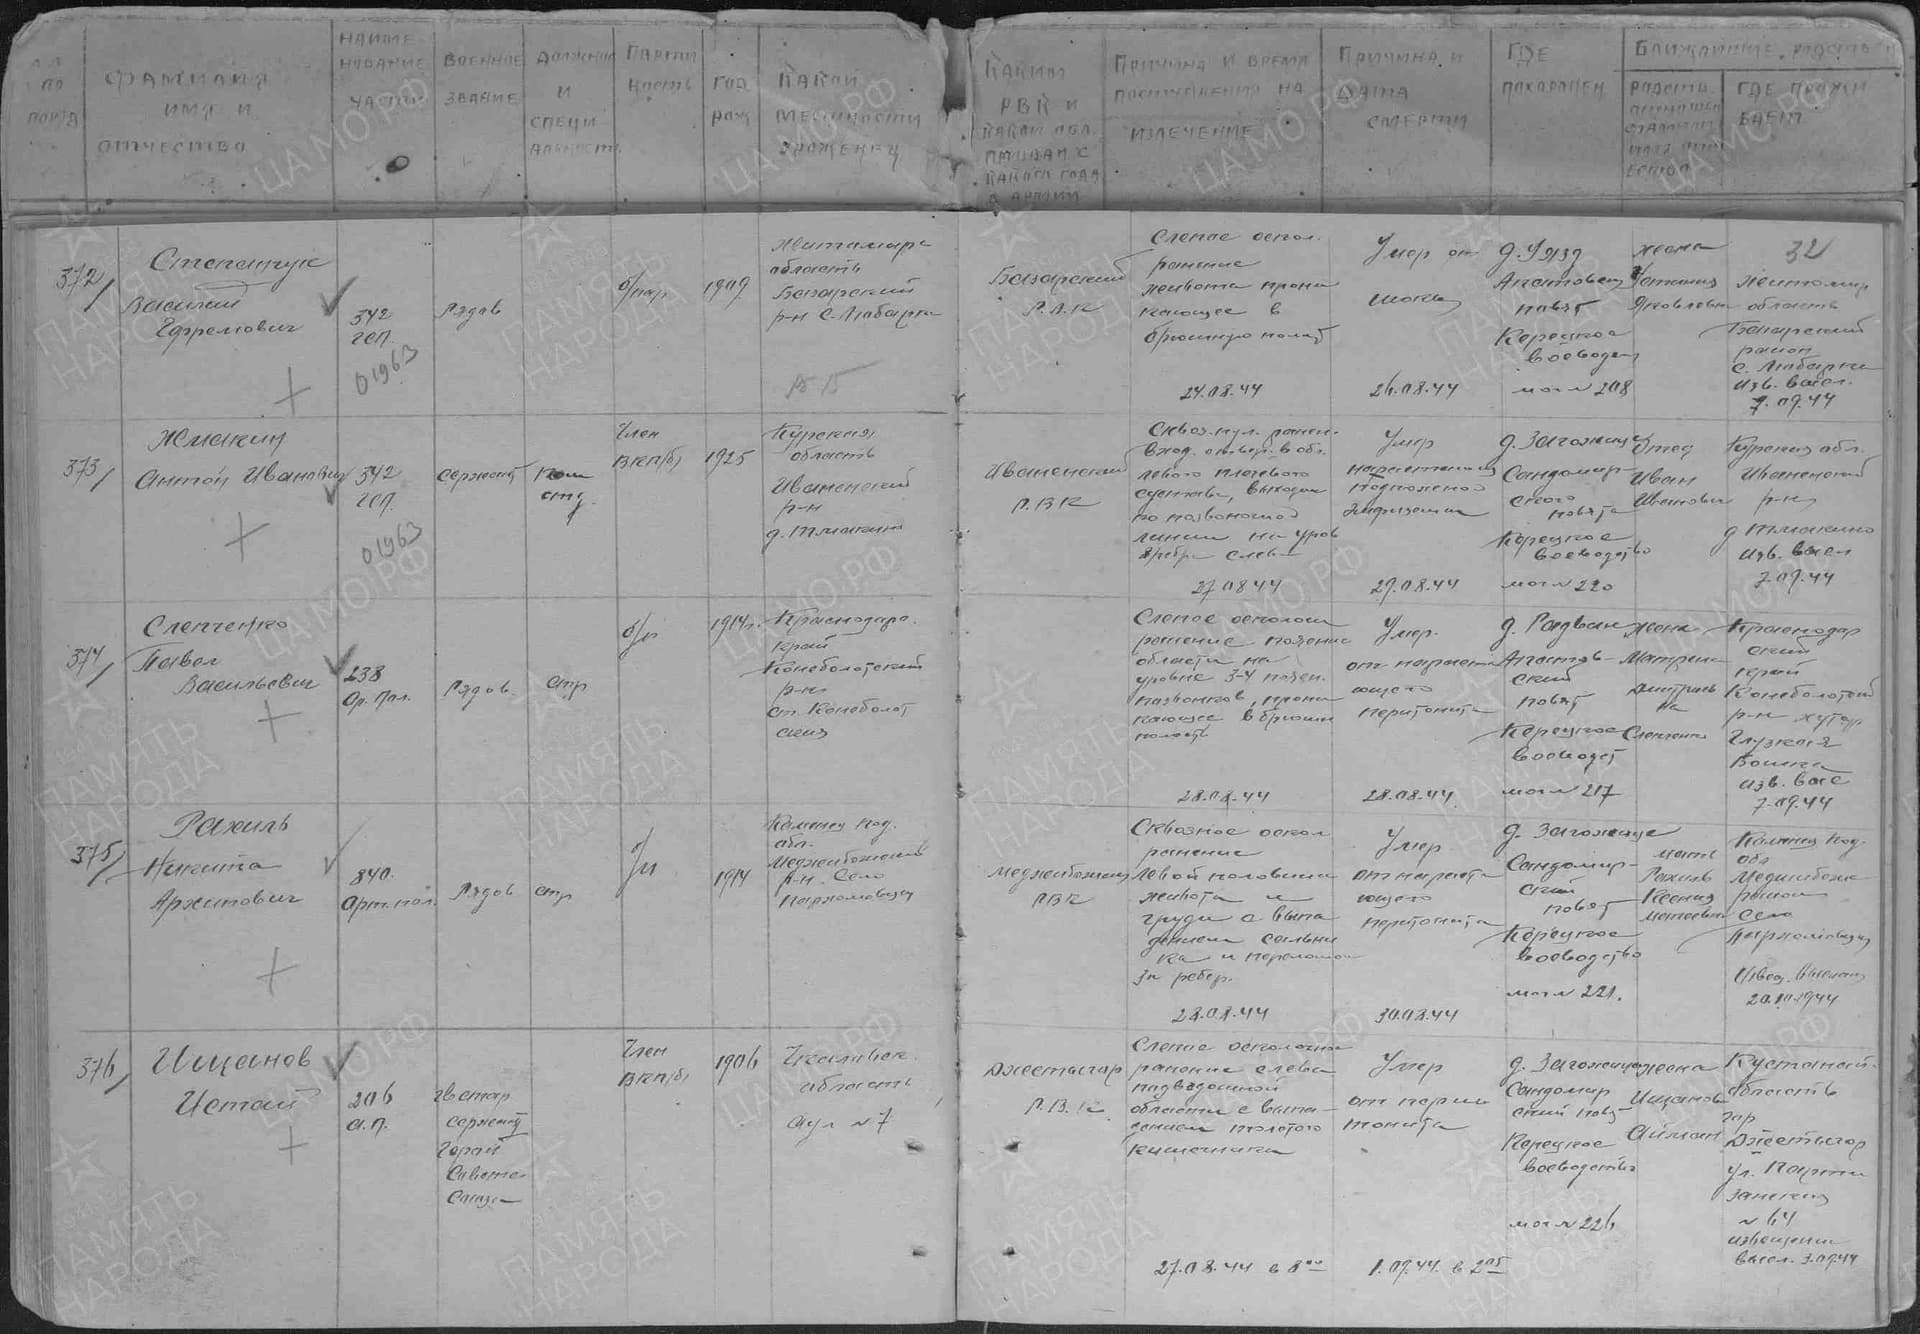 №№ ПО ПОРЯД
ФАМИЛИЯ ИМЯ И ОТЧЕСТВО
НАИМЕНОВАНИЕ ЧАСТИ
ВОЕННОЕ ЗВАНИЕ
ДОЛЖНОС И СПЕЦИАЛЬНОСТЬ
ПАРТИЙНОСТЬ
ГОД РОЖ
КАКОЙ МЕСТНОСТИ УРОЖЕНЕЦ
КАКИМ РВК И КАКОЙ ОБЛ. ПРИЗВАН С КАКОГО ГОДА В АРМИИ
ПРИЧИНА И ВРЕМЯ ПОСТУПЛЕНИЯ НА ИЗЛЕЧЕНИЕ
ПРИЧИНА И ДАТА СМЕРТИ
ГДЕ ПОХОРОНЕН
БЛИЖАЙШИЕ РОДСТВ
ГДЕ ПРОЖИВАЕТ
32
372/
Степанчук
Василий
Ефремович
342
гсп.
01963
Рядов
б/пар
1909
Житомирс
область
Базарский
р-н С. Любарка
Базарский
Р.В.К
Слепое оскол.
ранение
живота прони
кающее в
брюшную полость
24.08.44
Умер от
шока
26.08.44
повят
Керецкое
воеводст
мог № 208
жена
Яковлевна
Житомир
область
Базарский
район
с. Любарка
изв. высл.
7.09.44
373/
Жмакин
Антон Иванович
342
гсп.
01963
сержант
Ком
отд.
Член
ВКП/б/
1925
Курская
область
Иваненский
р-н
Иваненский
Р.В.К
Сквоз. пул. ранен.
вход. отверст. в обл.
левого плечевого
сустава, выходн
по позвоночной
линии на уров
8 ребра слева
27.08.44
Умер
29.08.44
д. Загожице
Сандомир
ского
повята
Керецкое
воеводство
мог № 220
Отец
Иван
Иванович
Курская обл.
Иваненский
р-н
изв. высл
7.09.44
374/
Слепченко
Павел
Васильевич
238
Ар. Пол.
Рядов.
стр
б/п
1914г.
Краснодарс.
край
Канеболотский
р-н
ст. Канеболот
ская
Слепое осколоч
ранение поясни
области на
уровне 3-4 поясн.
позвонков, прони
кающее в брюшн
полость
28.08.44
Умер.
от нараста
ющего
перитонита
28.08.44
д. Радван
Апатов-
ский
повят
Керецкое
воеводст
мог № 217
жена
Матрена
Дмитриев
на
Слепченко
Краснодар
ский
край
Канеболотский
р-н хутор
изв. высл
7.09.44
375/
Рахиль
Никита
Архипович
840.
Арт. пол.
Рядов
стр
б/п
1914
Каменец Под.
обл.
Меджибожский
р-н. Село
Меджибожский
РВК
Сквозное оскол
ранение
левой половины
живота и
груди с выпа
дением сальни
ка и переломом
3х ребер.
28.08.44
Умер.
от нараста
ющего
перитонита
30.08.44
д. Загожице
Сандомир-
ский
повят
Керецкое
воеводство
мог № 221.
мать
Рахиль
Ксения
Матвеевна
Каменец Под.
обл
Меджибожс
район
село
Извещ. выслано
20.10.1944
376/
Ищанов
Истай
206
а.п.
Гв. стар
сержант
Герой
Советс
Союза
Член
ВКП/б/
1906
Чкаловск.
область
аул № 7
Джетыгар
Р.В.К.
Слепое осколочное
ранение слева
подвздошной
области с выпа-
дением толстого
кишечника
27.08.44 в 8⁰⁰
Умер
от пери
тонита
1.09.44. в 2⁰⁵
д. Загожице
Сандомир
ский повят
Керецкое
воеводство
мог № 226
жена
Ищанова
Айман
Кустанай.
область
гор
Джетыгар
ул. Парти
занская
№ 64
извещение
высл. 3.09.44
ПАМЯТЬ НАРОДА
ЦАМО РФ